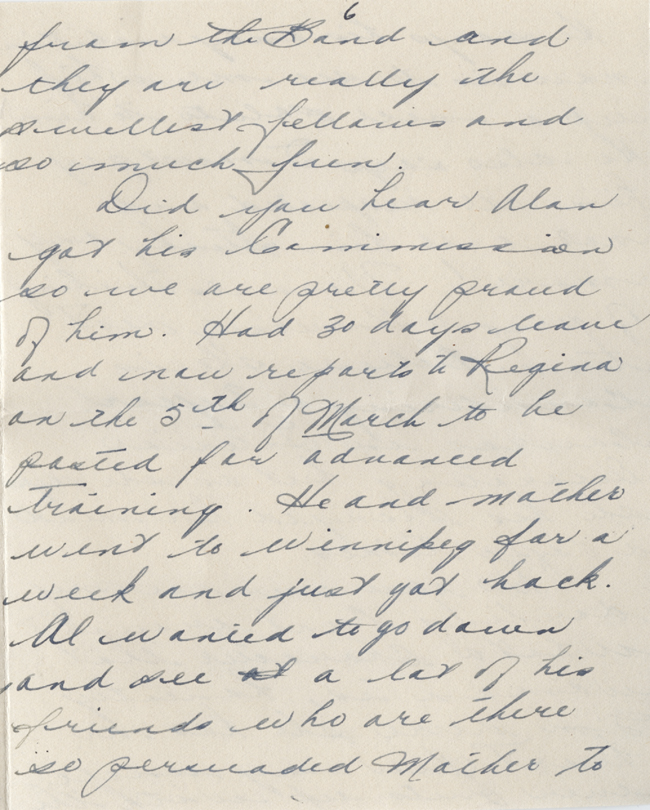 6
from the Band and
they are really the
swellest fellows and
so much fun.
Did you hear Alan
got his Commission
so we are pretty proud
of him. Had 30 days leave
and now reports to Regina
on the 5th of March to be
posted for advanced
training. He and mother
went to Winnipeg for a
week and just got back.
Al wanted to go down
and see at a lot of his
friends who are there
so persuaded Mother to